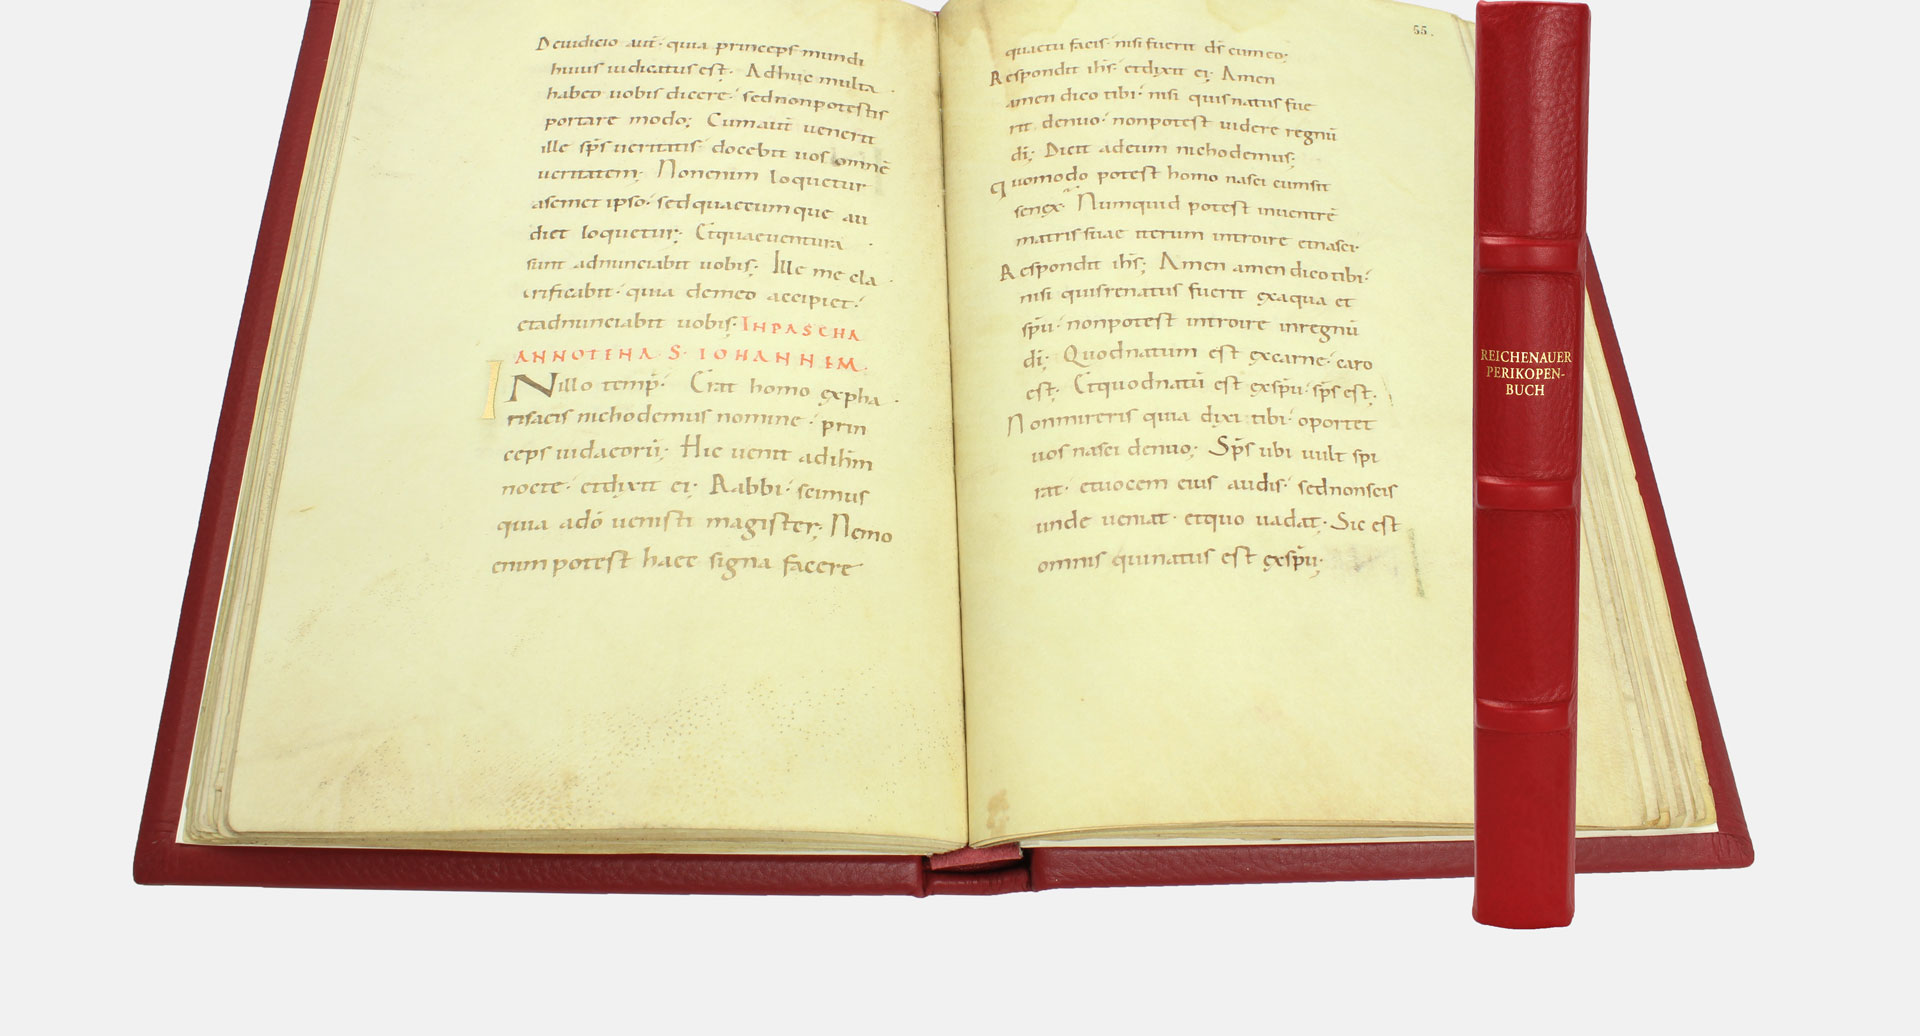 Deiudicio aut͛· quia princeps mundi
huius iudicatus est· Adhuc multa
habeo uobis dicere· sednonpotestis
portare modo; Cumaut͛ uenerit
ille sp̄s ueritatis· docebit uos omnē
ueritatem; Nonenim loquetur
asemet ipso· sedquaecumque au
diet loquetur; Etquaeuentura
sunt adnunciabit uobis; Ille me cla
rificabit· quia demeo accipiet·
etadnunciabit uobis· INPASCHA
ANNOTINA S· IOHANNEM·
INillo temp̄· Erat homo expha
risaeis nichodemus nomine· prin
ceps iudaeorū; Hic uenit adihm̄
nocte· etdixit ei; Rabbi· scimus
quia adō uenisti magister; Nemo
enim potest haec signa facere
55.
quaetu facis· nisi fuerit ds̄ cumeo;
Respondit ihs̄· etdixit ei; Amen
amen dico tibi· nisi quis natus fue
rit denuo· nonpotest uidere regnū
dī; Dicit adeum nichodemus;
Quomodo potest homo nasci cumsit
senex· Numquid potest inuentrē
matris suae iterum introire etnasci·
Respondit ihs̄; Amen amen dico tibi·
nisi quisrenatus fuerit exaqua et
spū· nonpotest introire inregnū
dī; Quodnatum est excarne· caro
est; Etquodnatū est exspū· sps̄ est;
Nonmireris quia dixi tibi· oportet
uos nasci denuo; Sps̄ ubi uult spi
rat· etuocem eius audis· sednonscis
unde ueniat· etquo uadat· Sic est
omnis quinatus est exspū;
REICHENAUER
PERIKOPEN-
BUCH